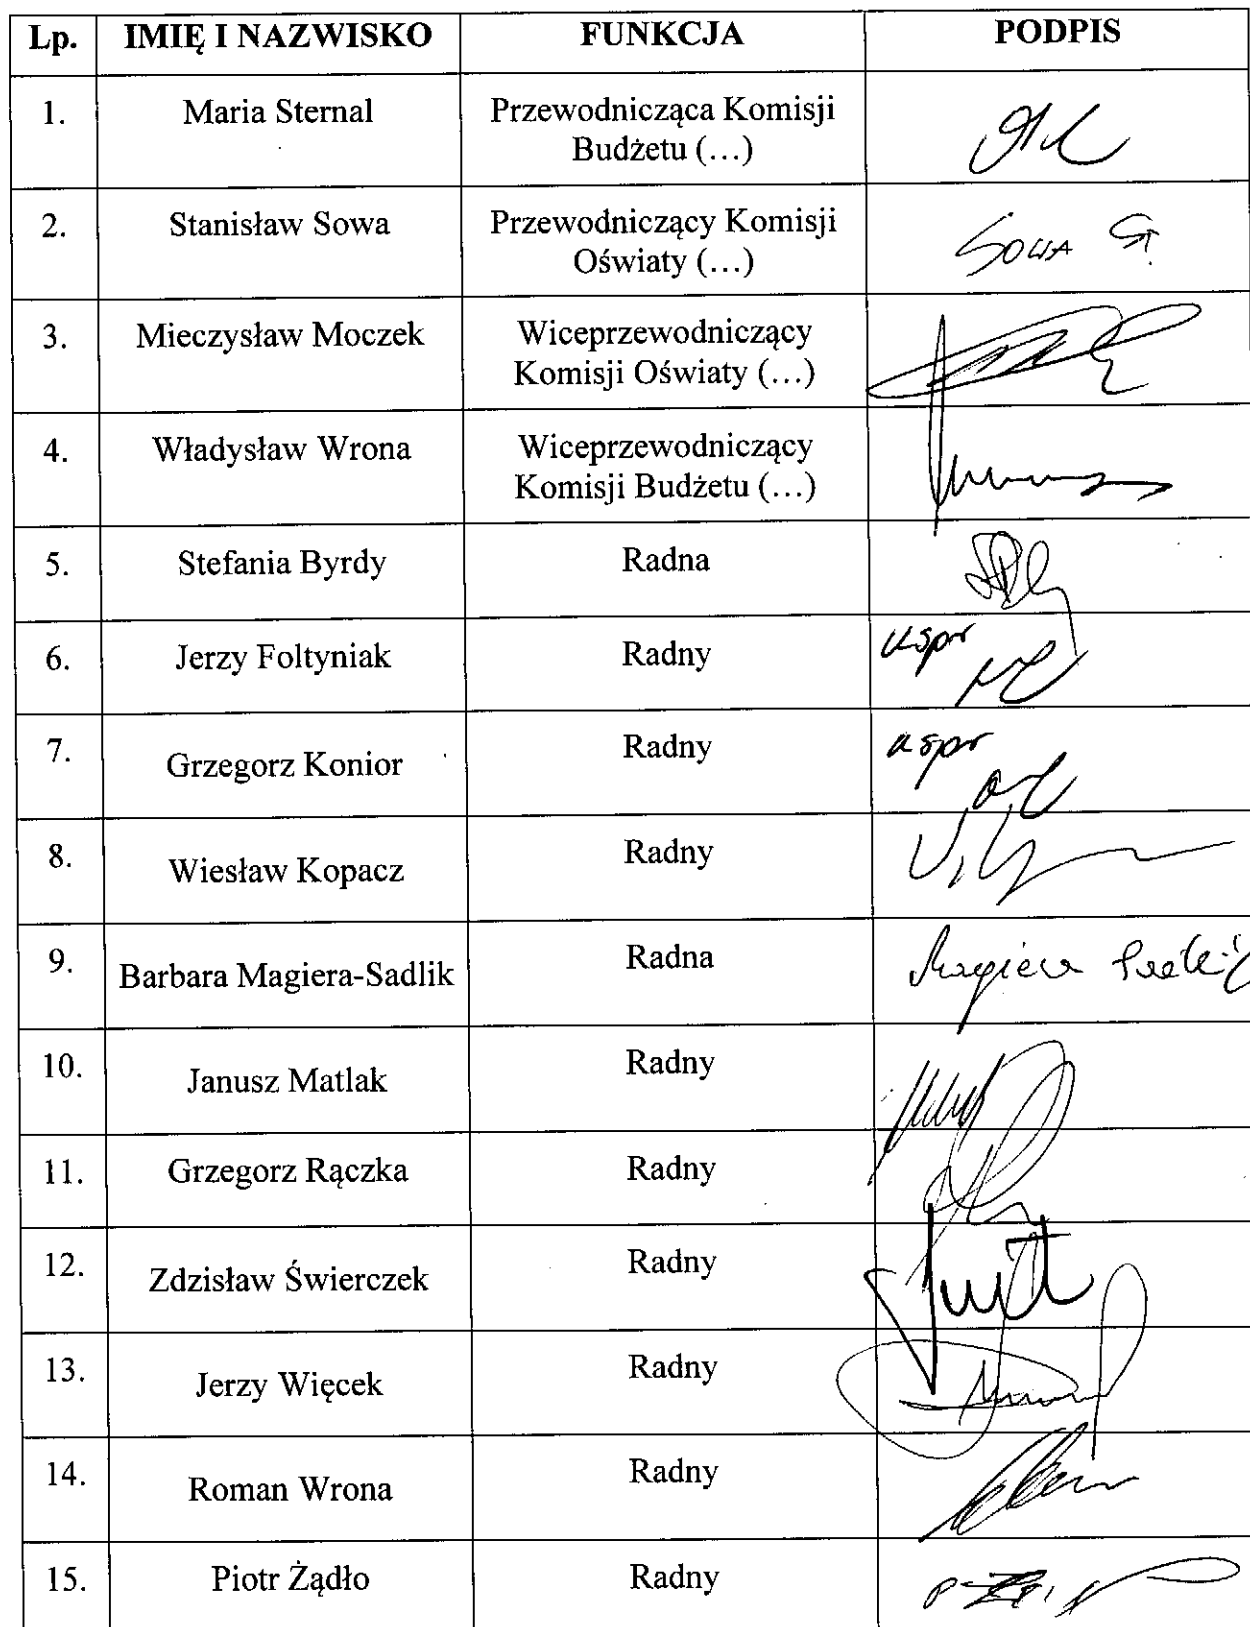 Lp. IMIĘ I NAZWISKO FUNKCJA PODPIS
1. Maria Sternal Przewodnicząca Komisji
Budżetu (…)
2. Stanisław Sowa Przewodniczący Komisji
Oświaty (…)
Sowa St.
3. Mieczysław Moczek Wiceprzewodniczący
Komisji Oświaty (…)
4. Władysław Wrona Wiceprzewodniczący
Komisji Budżetu (…)
5. Stefania Byrdy Radna
6. Jerzy Foltyniak Radny uspr
7. Grzegorz Konior Radny uspr
8. Wiesław Kopacz Radny
9. Barbara Magiera-Sadlik Radna Magiera Sadlik
10. Janusz Matlak Radny
11. Grzegorz Rączka Radny
12. Zdzisław Świerczek Radny
13. Jerzy Więcek Radny
14. Roman Wrona Radny
15. Piotr Żądło Radny